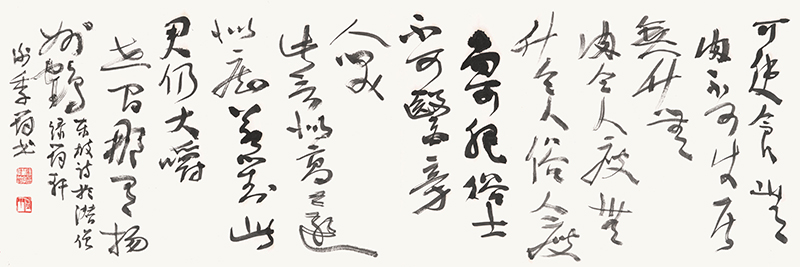 可使食無
肉不可使居
無竹無
肉令人瘦無
竹令人俗人瘦
尚可肥俗士
不可醫旁
人笑
此言似高還
似痴若對此
君仍大嚼
世間那有揚
州鶴
東坡詩於潛僧
綠筠軒
謝季筠書